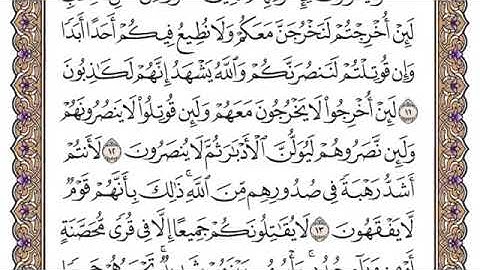 لَئِنْ أُخْرِجْتُمْ لَنَخْرُجَنَّ مَعَكُمْ وَلَا نُطِيعُ فِيكُمْ أَحَدًا أَبَدًا
وَإِن قُوتِلْتُمْ لَنَنصُرَنَّكُمْ وَٱللَّهُ يَشْهَدُ إِنَّهُمْ لَكَٰذِبُونَ
١١ لَئِنْ أُخْرِجُوا۟ لَا يَخْرُجُونَ مَعَهُمْ وَلَئِن قُوتِلُوا۟ لَا يَنصُرُونَهُمْ
وَلَئِن نَّصَرُوهُمْ لَيُوَلُّنَّ ٱلْأَدْبَٰرَ ثُمَّ لَا يُنصَرُونَ ١٢ لَأَنتُمْ
أَشَدُّ رَهْبَةً فِى صُدُورِهِم مِّنَ ٱللَّهِ ۚ ذَٰلِكَ بِأَنَّهُمْ قَوْمٌ
لَّا يَفْقَهُونَ ١٣ لَا يُقَٰتِلُونَكُمْ جَمِيعًا إِلَّا فِى قُرًى مُّحَصَّنَةٍ